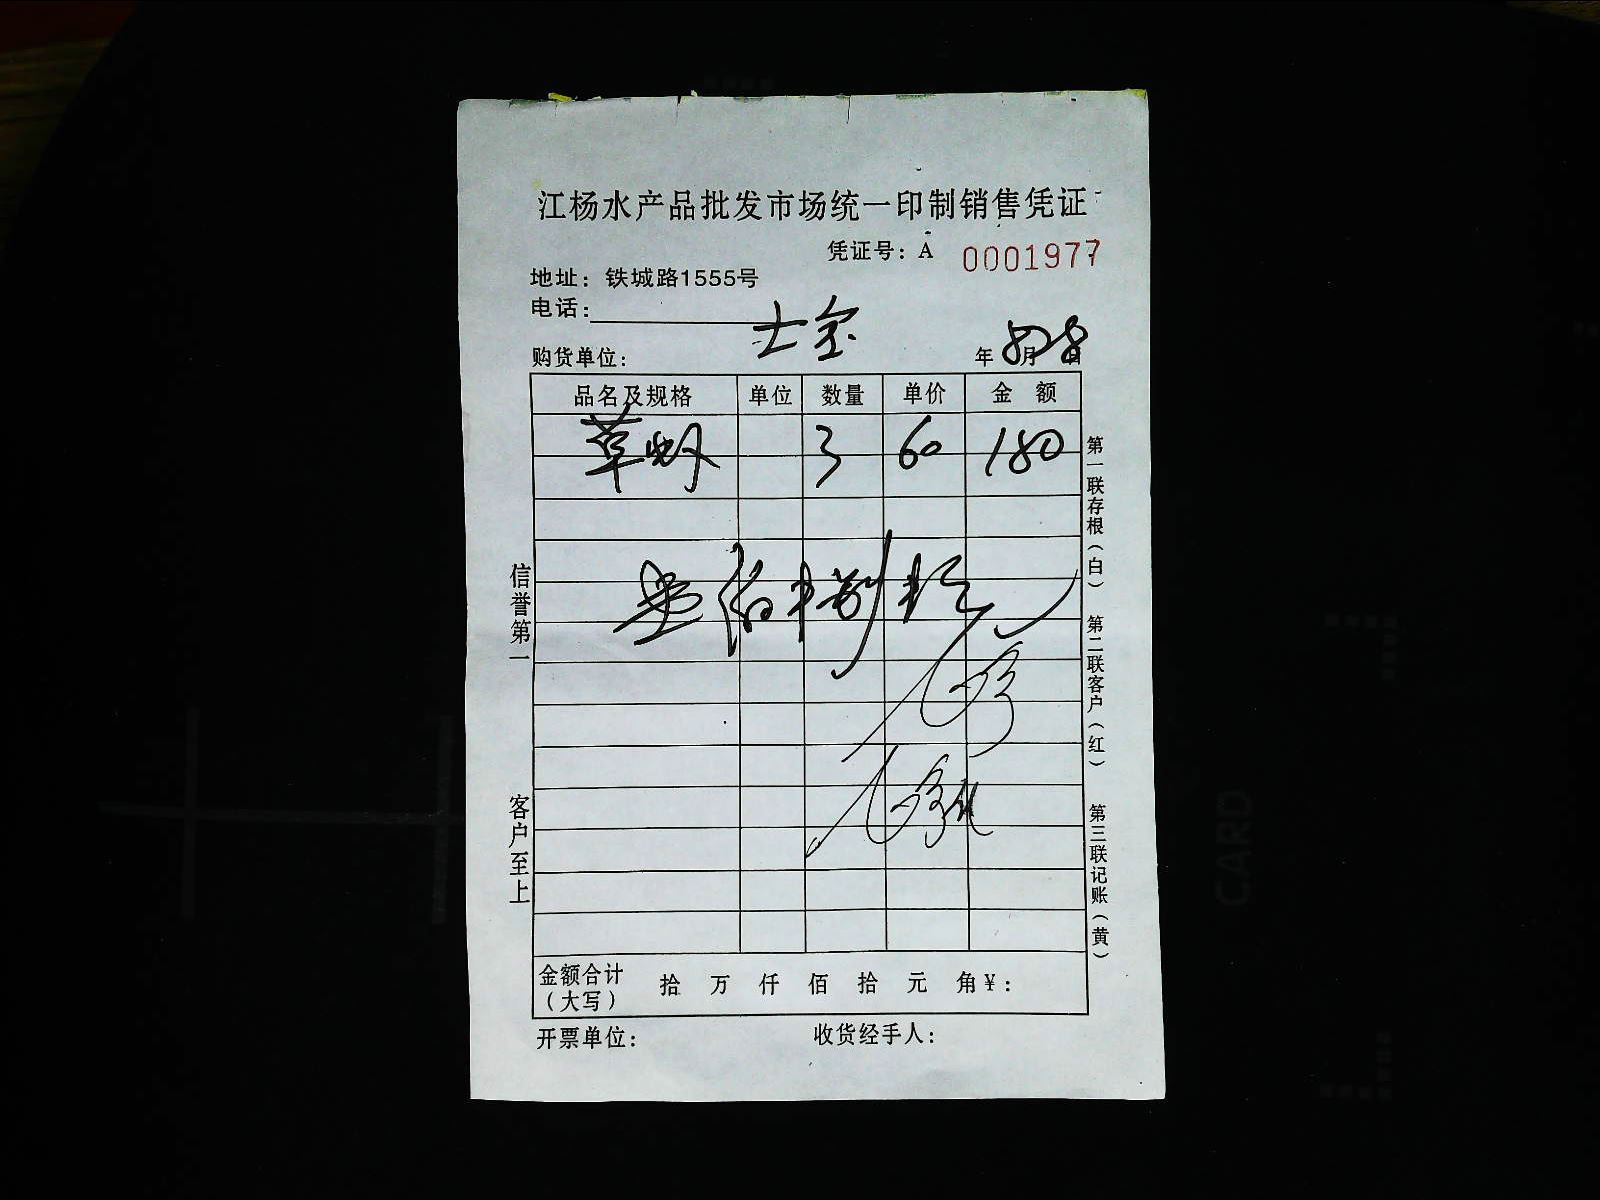 江杨水产品批发市场统一印制销售凭证
凭证号：A 0001977
地址：铁城路1555号
电话：
士宝
购货单位： 年 月 日
品名及规格 单位 数量 单价 金额
草虾 3 60 180
金额合计（大写） 拾 万 仟 佰 拾 元 角 ¥：
开票单位： 收货经手人：
信誉第一
客户至上
第一联存根（白）
第二联客户（红）
第三联记账（黄）